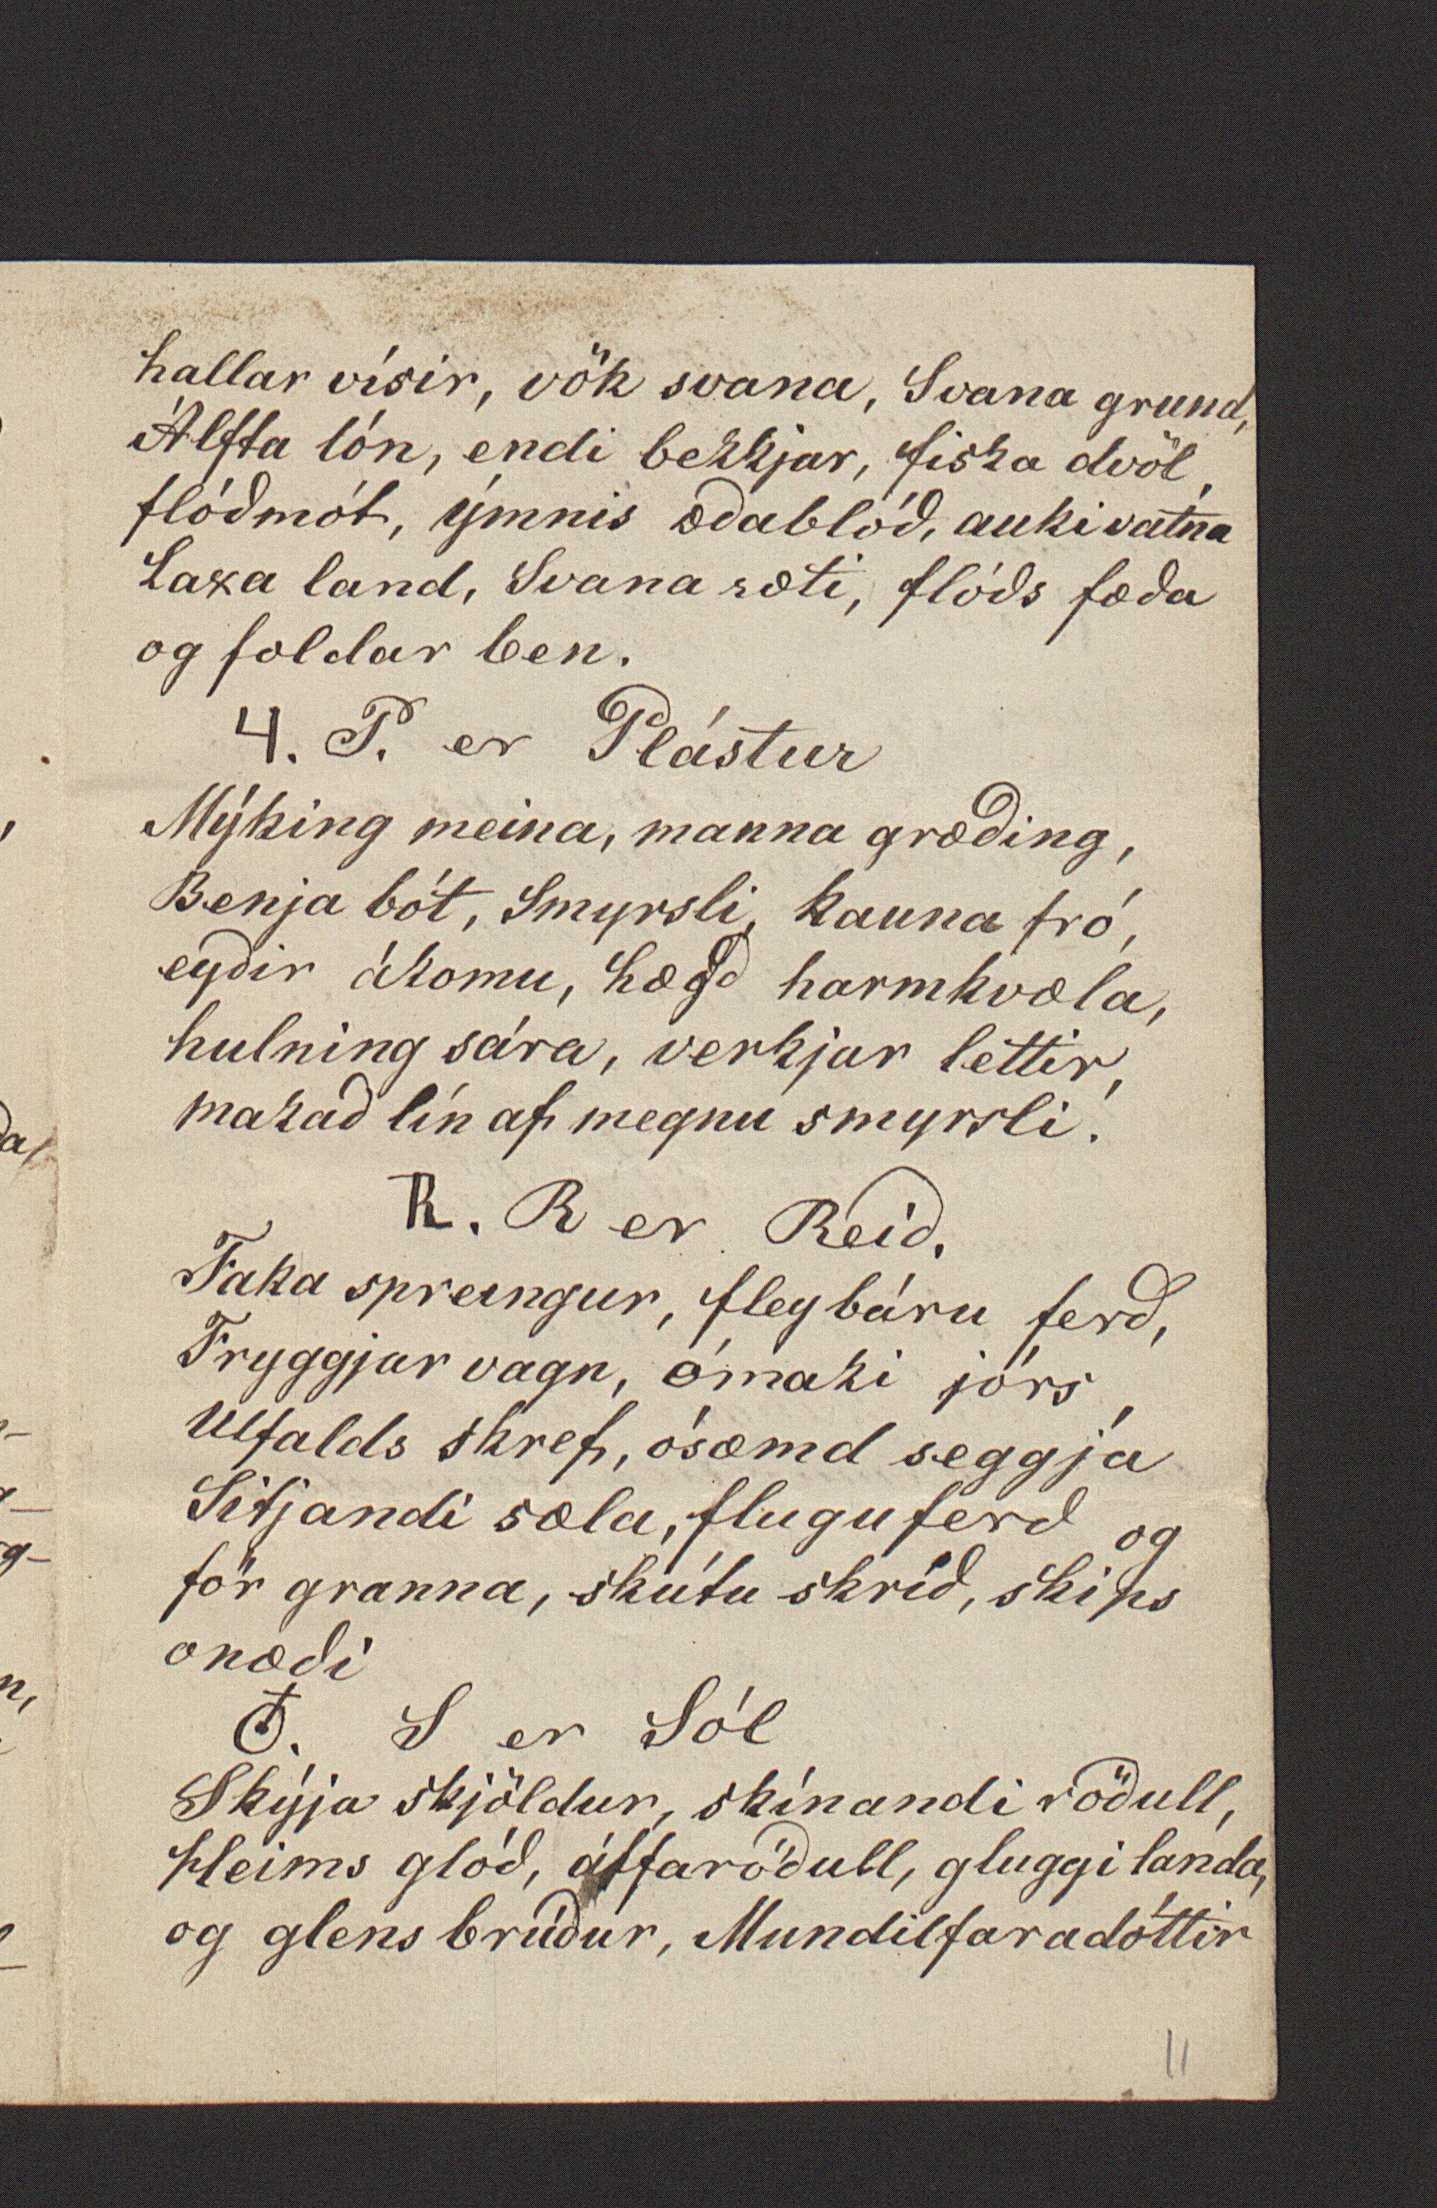 hallar vísir, vök svana, Svana grund,
Álfta lón, endi bekkjar, fiska dvöl,
flóðmót, ýmnis æðablóð, auki vatna
Laxa land, Svana sæti, flóðs fæða
og foldar ben.
4. P. er Plástur
Mýking meina, manna græðing,
Benja bót, Smyrsli, kauna fró,
eyðir ákomu, hægð harmkvæla,
hulning sára, verkjar lettir,
makað lín af megnu smyrsli.
R. R er Reið.
Faka spreingur, fley báru ferð,
Fryggjar vagn, ómaki jórs,
Ulfalds skref, ósæmd seggja
Sitjandi sæla, fluguferð og
för granna, skútu skrið, skips
onæði
S er Sól
Skýja skjöldur, skínandi röðull,
Heims glóð, álfaröðull, gluggi landa,
og glens brúður, Mundilfaradóttir
11